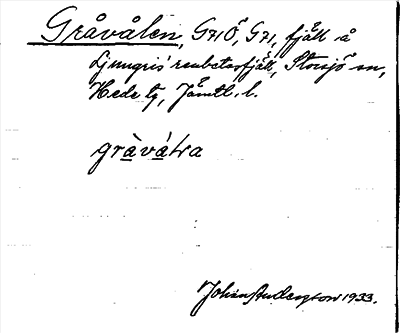 Gråvålen, Gz1Ö, Gz1, fjäll å
Ljungris' renbetesfjäll, Storsjö sn,
Hede tg, Jämtl. l.
gråvåłra
Johan Anderston 1933.